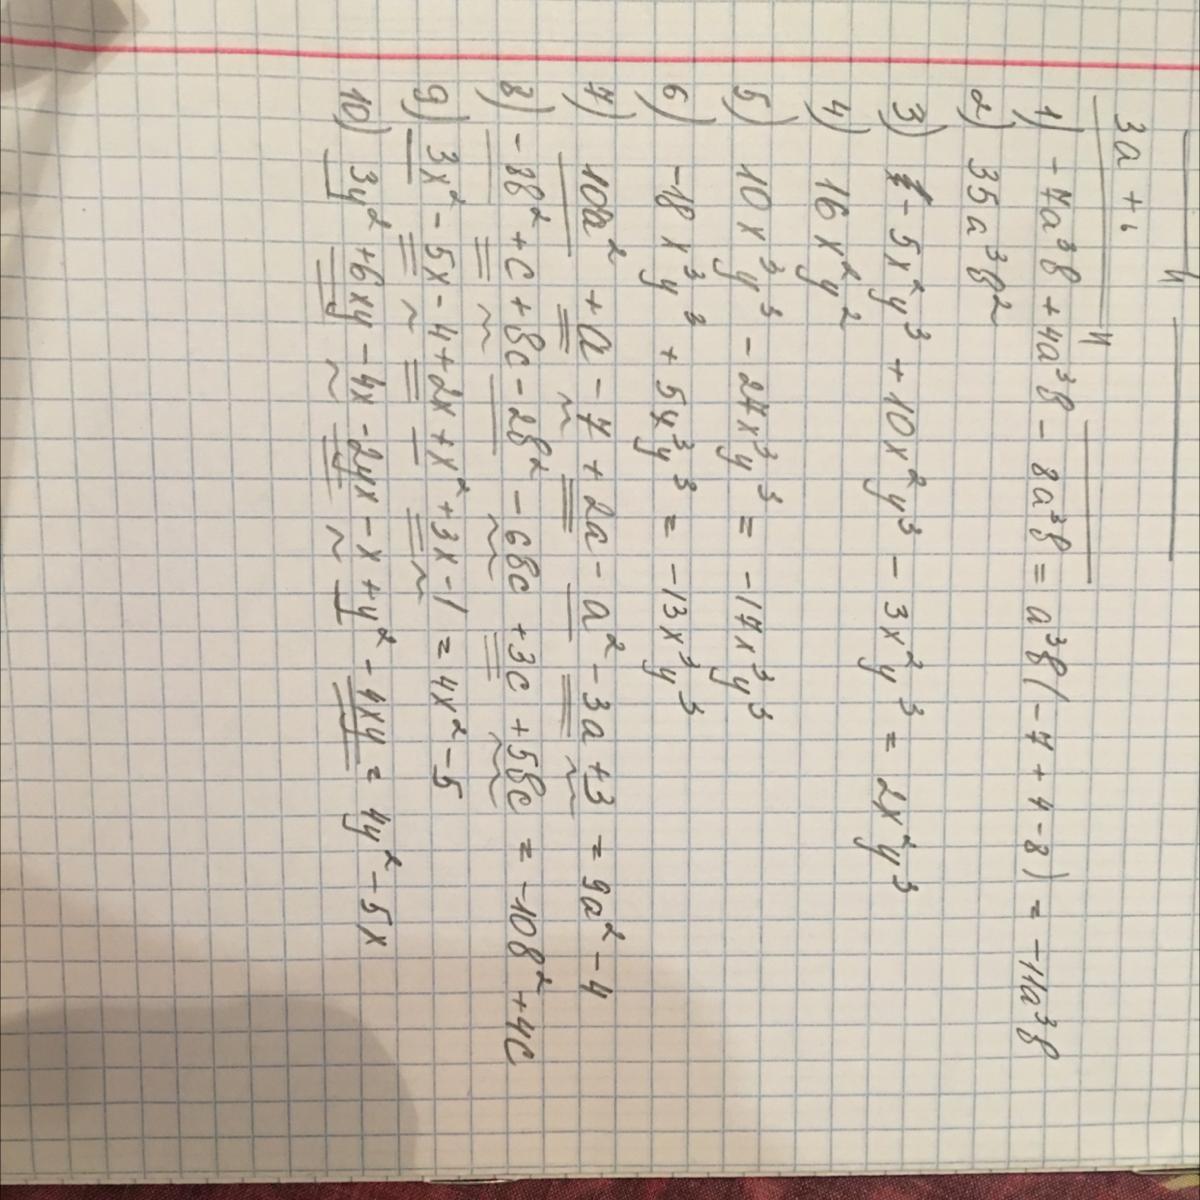 3a +
1) -7a³b + 4a³b - 8a³b = a³b(-7 + 4 - 8) = -11a³b
2) 35a³b²
3) -5x²y³ + 10x²y³ - 3x²y³ = 2x²y³
4) 16x²y²
5) 10x³y³ - 27x³y³ = -17x³y³
6) -18x³y³ + 5x³y³ = -13x³y³
7) 10a² + a - 7 + 2a - a² - 3a + 3 = 9a² - 4
8) -8b² + c + bc - 2b² - 6bc + 3c + 5bc = -10b² + 4c
9) 3x² - 5x - 4 + 2x + x² + 3x - 1 = 4x² - 5
10) 3y² + 6xy - 4x - 2yx - x + y² - 4xy = 4y² - 5x